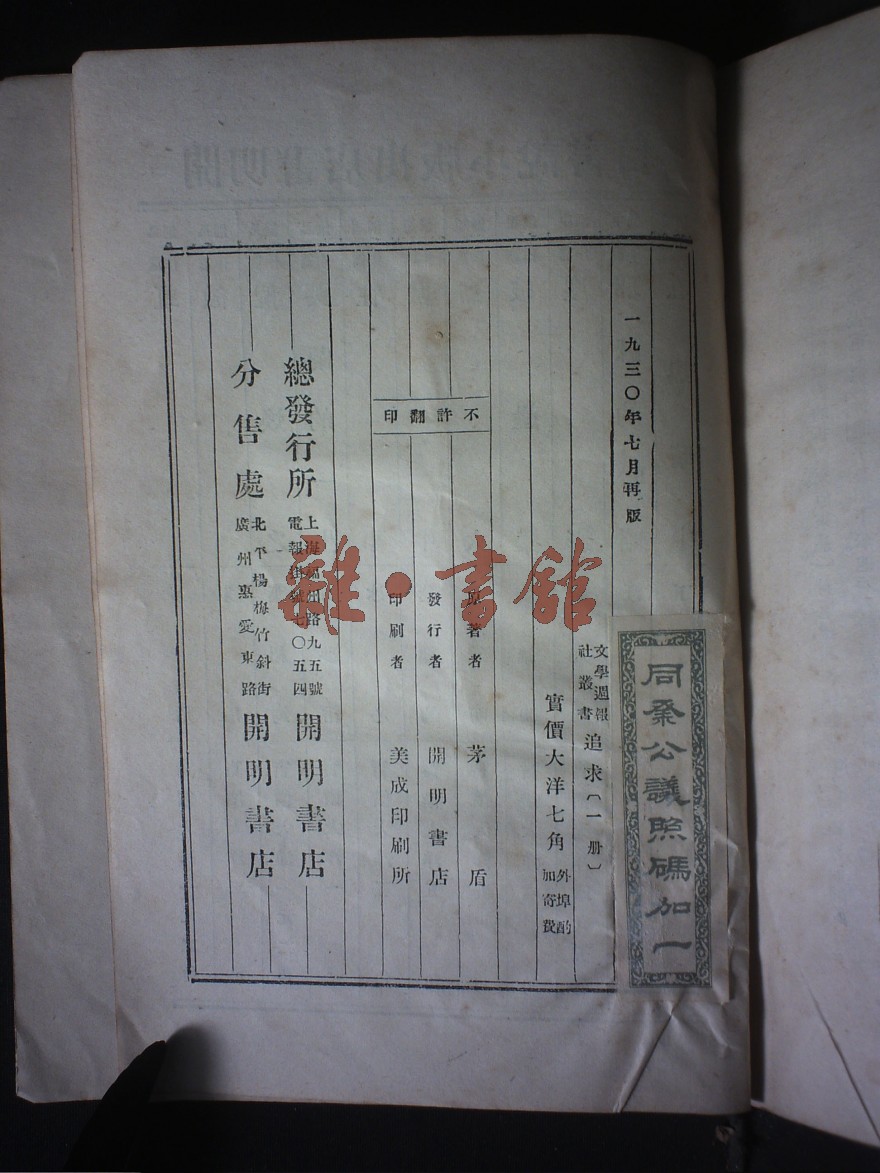 一九三〇年七月再版
文學週報
社叢書
追求（一册）
實價大洋七角
外埠酌
加寄費
不許翻印
原著者 茅盾
發行者 開明書店
印刷者 美成印刷所
總發行所
上海福州路九五號
電報掛號七〇五四
開明書店
分售處
北平楊梅竹斜街
廣州惠愛東路
開明書店
同業公議照碼加一
雜·書館